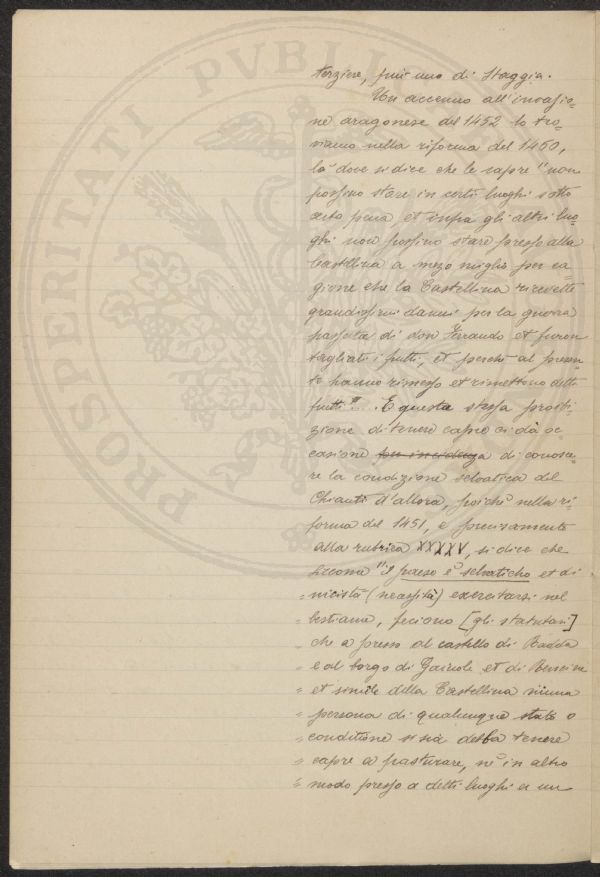 PROSPERITATI PVBLICAE
terziere, più uno di Staggia.
Un accenno all'invasio-
ne aragonese del 1452 lo tro-
viamo nella riforma del 1460,
là dove si dice che le capre "non
possino stare in certi luoghi sotto
certa pena et infra gli altri luo-
ghi non possino stare presso alla
Castellina a mezo miglio per ca-
gione che la Castellina ricevette
grandissimi danni per la guerra
passata di don Ferrando et furon
tagliati i frutti, et perché al presen-
te hanno rimesso et rimettono detti
frutti". E questa stessa proibi-
zione di tenere capre ci dà oc
casione per incidenza di conosce-
re la condizione selvatica del
Chianti d'allora, poichè nella ri-
forma del 1451, e precisamente
alla rubrica XXXXV, si dice che
siccome "il paese è selvaticho et di
" nicistà (necessità) exercitarsi nel
" bestiame, feciono [gli statutari]
" che a presso al castello di Radda
" e al borgo di Gaiuole et di
" et simile della Castellina niuna
" persona di qualunque stato o
" conditione si sia debba tenere
" capre a pasturare, nè in altro
" modo presso a detti luoghi a un